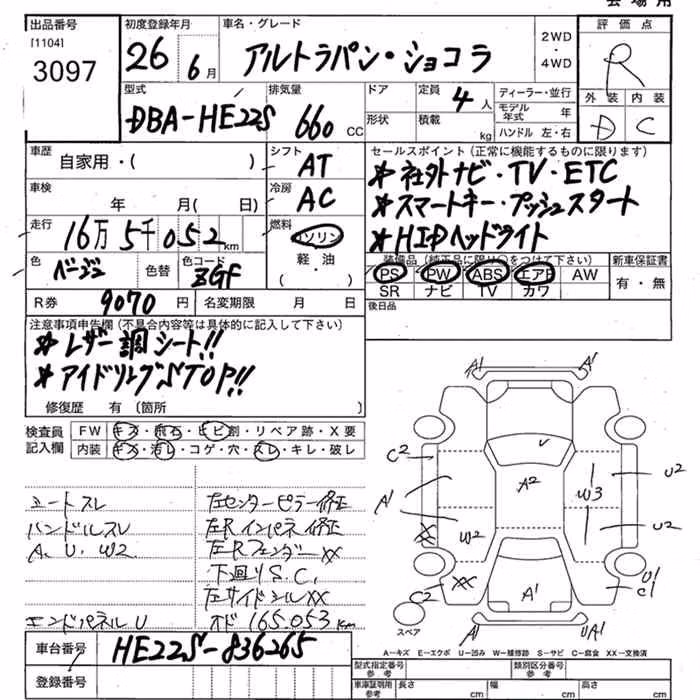 会場用
出品番号
[1104]
3097
初度登録年月
26 6月
車名・グレード
アルトラパン・ショコラ
2WD
・
4WD
評価点
R
型式
DBA-HE22S
排気量
660 CC
ドア
形状
定員
4人
積載
kg
ディーラー・並行
モデル年式 年
ハンドル 左・右
外装 内装
D C
車歴
自家用・( )
シフト
AT
車検
年 月( 日)
冷房
AC
セールスポイント(正常に機能するものに限ります)
*社外ナビ・TV・ETC
*スマートキー・プッシュスタート
*HIDヘッドライト
走行
16万5千052km
燃料
ガソリン
軽・油
( )
色
ベージュ
色替
色コード
ZGF
装備品(純正品に限り○をつけて下さい)
PS PW ABS エアB AW
SR ナビ TV カワ
新車保証書
有・無
R券
9070円
名変期限 月 日
後日品
注意事項申告欄(不具合内容等は具体的に記入して下さい)
*レザー調シート!!
*アイドリングSTOP!!
修復歴 有(箇所 )
検査員記入欄
FW キズ・飛石・ヒビ割・リペア跡・X要
内装 キズ・汚レ・コゲ・穴・スレ・キレ・破レ
シートスレ
ハンドルスレ
A、U、W2
エンドパネルU
左センターピラー修正
左Rインパネ修正
左RフェンダーXX
下廻りS.C.
左サイドシルXX
オド165.053km
A1 A1
C2
A1
XX
W2
XX
C2
A2
W3
U2
U2
U1
C1
A1
A1
UA1
スペア
A-キズ E-エクボ U-凹み W-補修跡 S-サビ C-腐食 XX-交換済
車台番号
HE22S-836265
登録番号
型式指定番号
参考
類別区分番号
参考
車庫証明用
参考
長さ cm
幅 cm
高さ cm